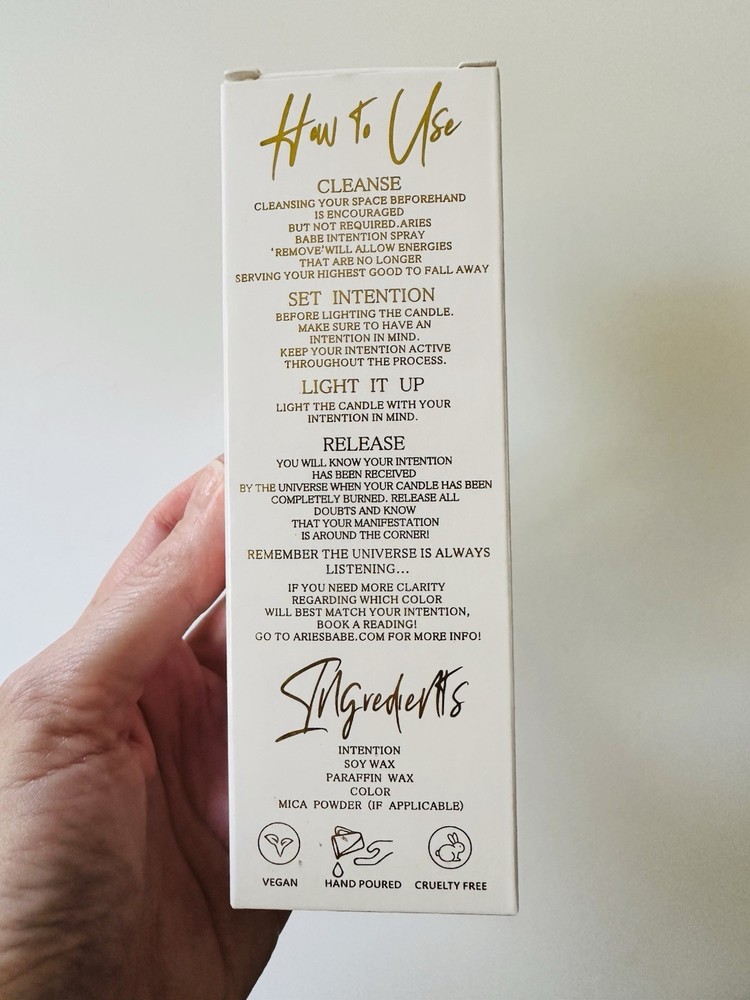 How To Use
CLEANSE
CLEANSING YOUR SPACE BEFOREHAND
IS ENCOURAGED
BUT NOT REQUIRED.ARIES
BABE INTENTION SPRAY
'REMOVE'WILL ALLOW ENERGIES
THAT ARE NO LONGER
SERVING YOUR HIGHEST GOOD TO FALL AWAY
SET INTENTION
BEFORE LIGHTING THE CANDLE.
MAKE SURE TO HAVE AN
INTENTION IN MIND.
KEEP YOUR INTENTION ACTIVE
THROUGHOUT THE PROCESS.
LIGHT IT UP
LIGHT THE CANDLE WITH YOUR
INTENTION IN MIND.
RELEASE
YOU WILL KNOW YOUR INTENTION
HAS BEEN RECEIVED
BY THE UNIVERSE WHEN YOUR CANDLE HAS BEEN
COMPLETELY BURNED. RELEASE ALL
DOUBTS AND KNOW
THAT YOUR MANIFESTATION
IS AROUND THE CORNER!
REMEMBER THE UNIVERSE IS ALWAYS
LISTENING...
IF YOU NEED MORE CLARITY
REGARDING WHICH COLOR
WILL BEST MATCH YOUR INTENTION,
BOOK A READING!
GO TO ARIESBABE.COM FOR MORE INFO!
Ingredients
INTENTION
SOY WAX
PARAFFIN WAX
COLOR
MICA POWDER (IF APPLICABLE)
VEGAN HAND POURED CRUELTY FREE